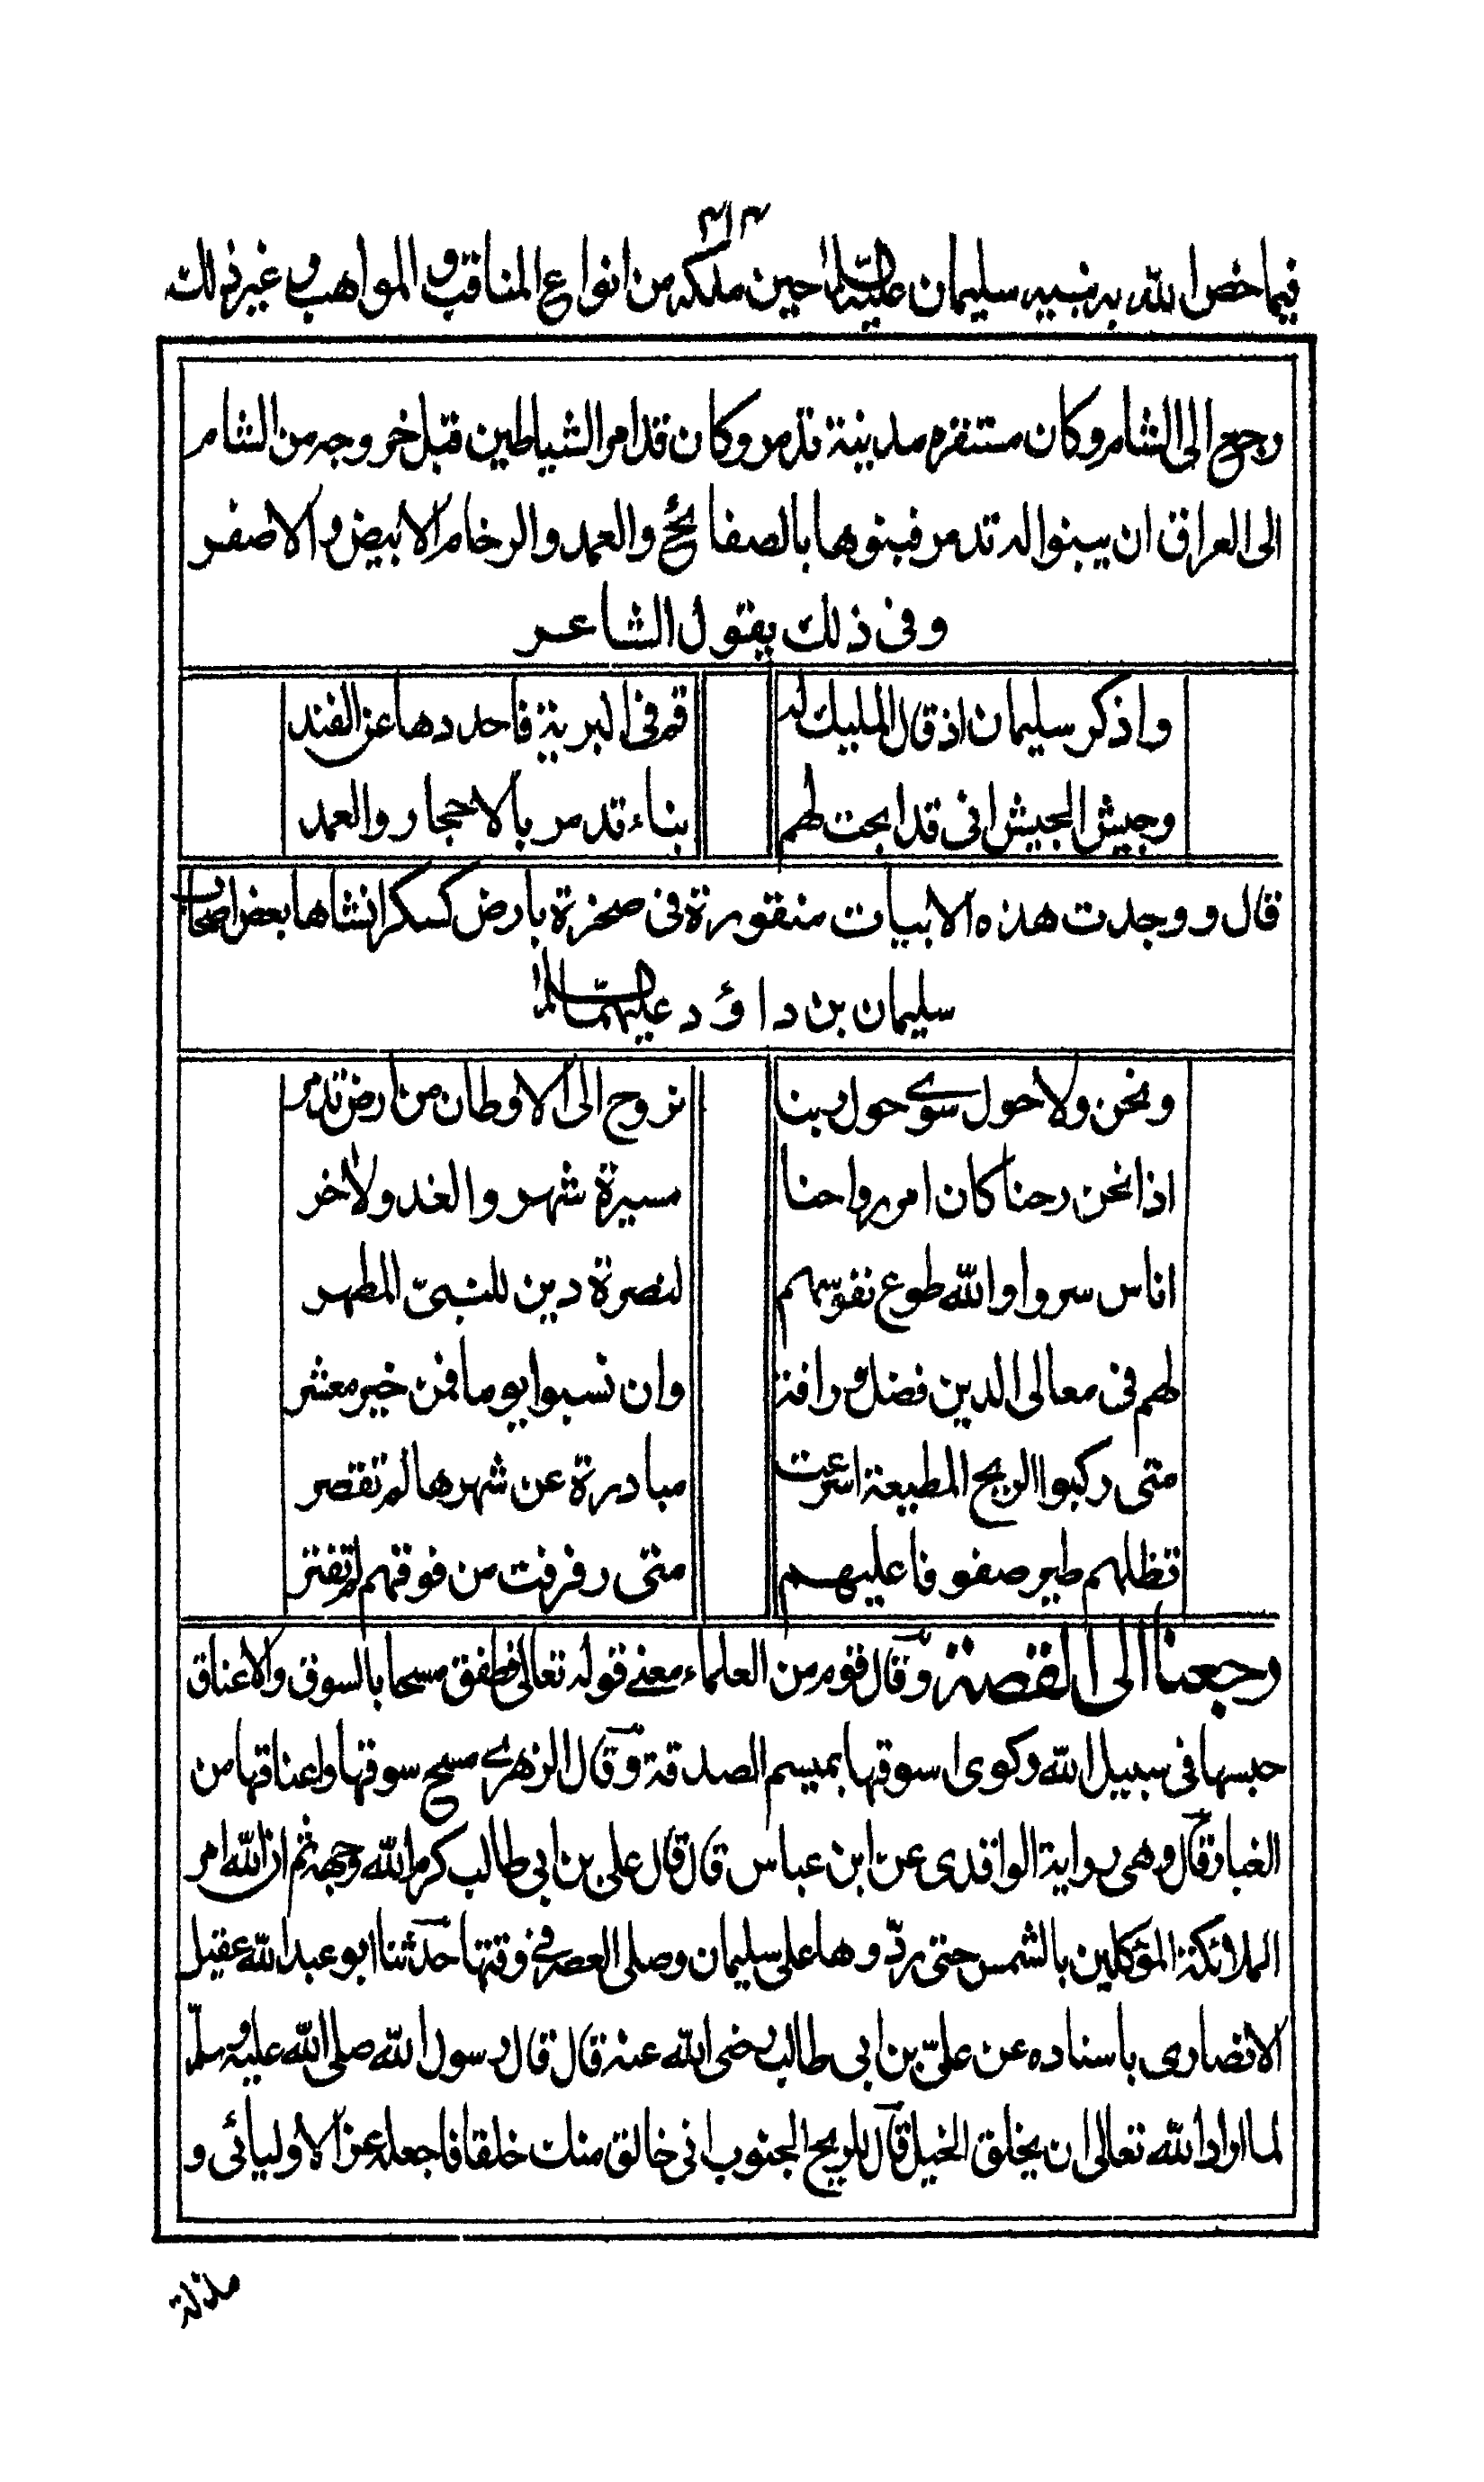 ٣١٣
فيما خص الله به نبيه سليمان عليه السلام حين ملكه من انواع المناقب و المواهب و غير ذلك
رجع الى الشام وكان مستقره مدينة تدمر وكان قد امر الشياطين قبل خروجه من الشام
الى العراق ان يبنوا له تدمر فبنوها بالصفائح والعمد والرخام الابيض والاصفر
وفى ذلك يقول الشاعر
واذكر سليمان اذ قال المليك له قم فى البرية فاحددها عن الفند
وجيش الجيش انى قد ابحت لهم بناء تدمر بالاحجار والعمد
قال ووجدت هذه الابيات منقورة فى صخرة بارض كسكر انشاها بعض اصحاب
سليمان بن داؤد عليهما السلام
ونحن ولا حول سوے حول ربنا نروح الى الاوطان من ارض تدمر
اذا نحن رحنا كان امر رواحنا مسيرة شهر والغد ولآخر
اناس سروا والله طوع نفوسهم لنصرة دين للنبىّ المطهر
لهم فى معالى الدين فضل و رافة وان نسبوا يوما فمن خير معشر
متى ركبوا الريح المطيعة اسرعت مبادرة عن شهرها لم تقصر
تظلهم طير صفوفا عليهم متى رفرفت من فوقهم لم تفتر
رجعنا الى القصة وقال قوم من العلماء معنے قوله تعالى فطفق مسحا بالسوق والاعناق
حبسها فى سبيل الله وكوى اسوقها بميسم الصدقة وقال الزهرے مسح سوقها واعناقها من
الغبار قال وهى رواية الوا قدى عن ابن عباس قال قال على بن ابى طالب كرم الله وجهه ثم ان الله امر
الملائكة المؤكلين بالشمس حتى ردّ وها على سليمان وصلى العصر فے وقتها حدثنا ابو عبد الله عقيل
الانصارى باسناده عن علىّ بن ابى طالب رضى الله عنه قال قال رسول الله صلى الله عليه وسلّم
لما اراد الله تعالى ان يخلق الخيل قال للريح الجنوب انى خالق منك خلقا فاجعله عز الاوليائى و
مذلة